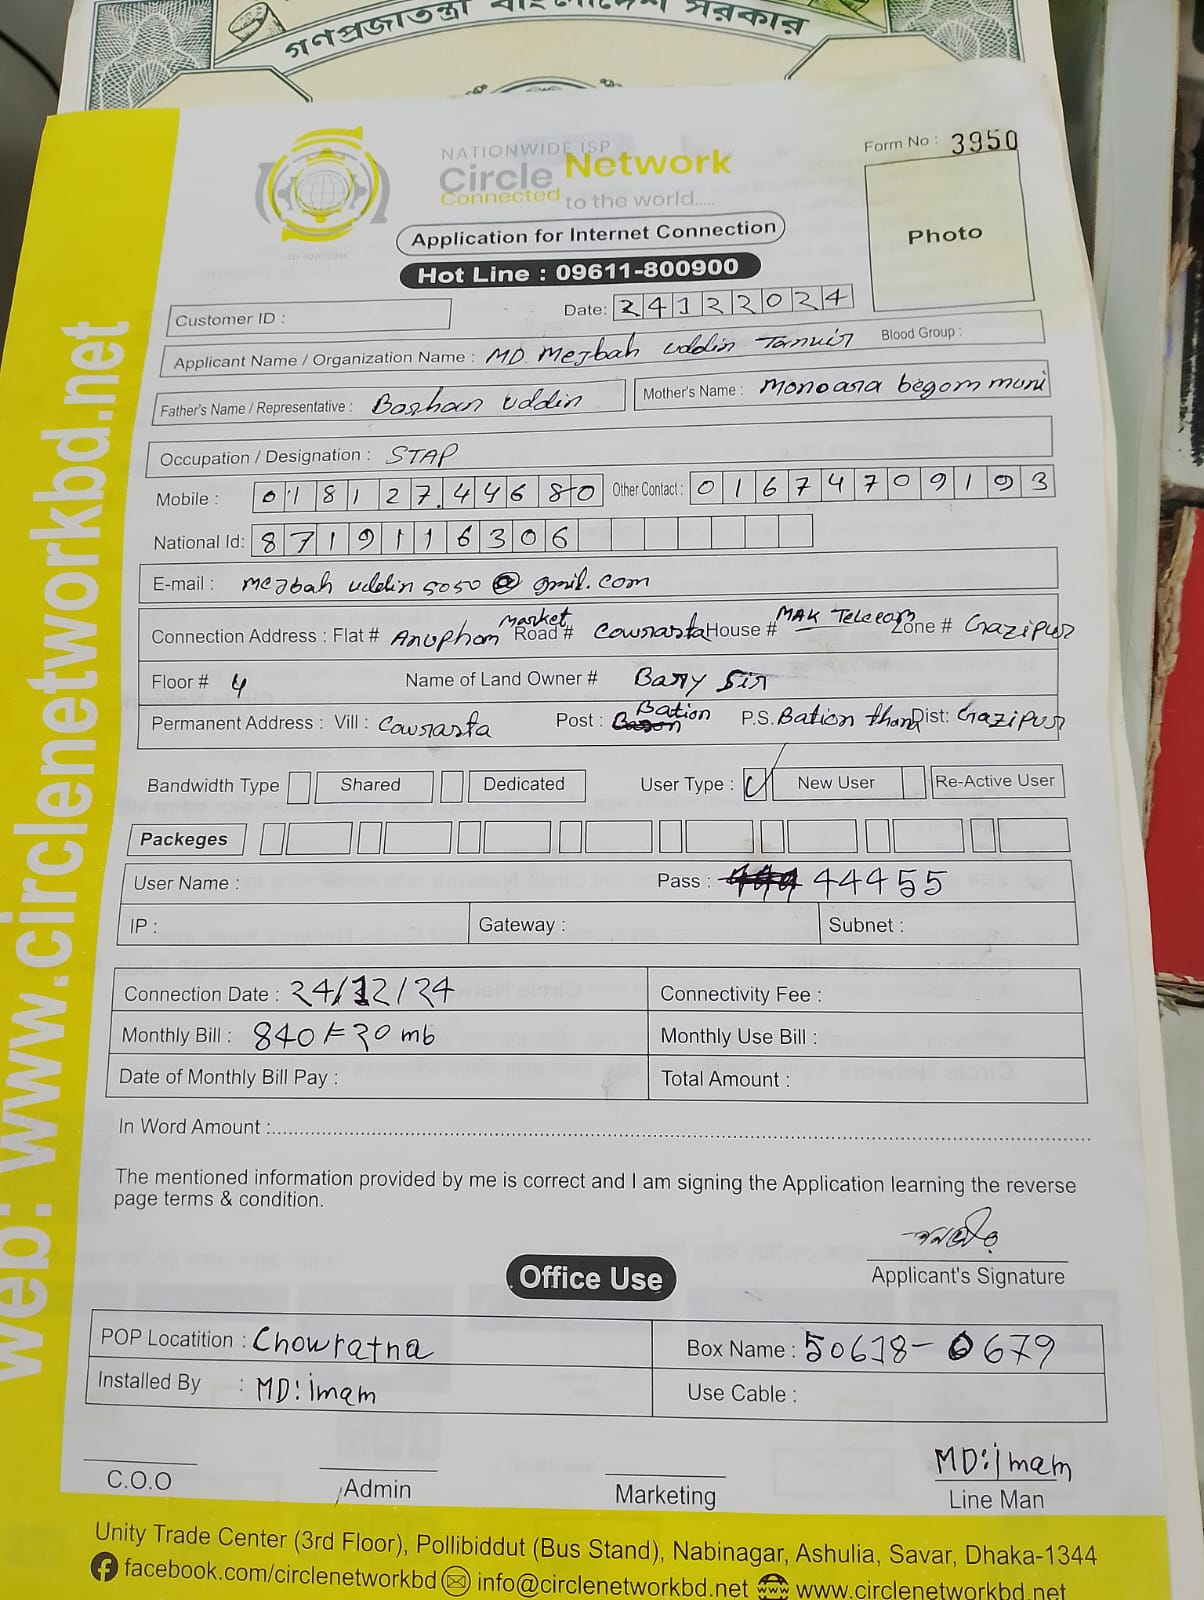 গণপ্রজাতন্ত্রী বাংলাদেশ সরকার
NATIONWIDE ISP
Circle Network
Connected to the world.....
ISO 9001:2015
Form No : 3950
Photo
Application for Internet Connection
Hot Line : 09611-800900
Customer ID :
Date: 24122024
Applicant Name / Organization Name : MD. Mejbah uddin Tanvir Blood Group :
Father's Name / Representative : Borhan uddin Mother's Name : Monoara begom muni
Occupation / Designation : STAP
Mobile : 01812744680 Other Contact : 01674709193
National Id: 8719116306
E-mail : mejbah uddin 5050 @ gmil.com
Connection Address : Flat # Anupham Market Road # Cowrasta House # MAK Telecom Zone # Gazipur
Floor # 4 Name of Land Owner # Bary Sir
Permanent Address : Vill : Cowrasta Post : Bation P.S. Bation thana Dist: Gazipur
Bandwidth Type Shared Dedicated User Type : New User Re-Active User
Packeges
User Name : Pass : 44455
IP : Gateway : Subnet :
Connection Date : 24/12/24 Connectivity Fee :
Monthly Bill : 840/= 20 mb Monthly Use Bill :
Date of Monthly Bill Pay : Total Amount :
In Word Amount :
The mentioned information provided by me is correct and I am signing the Application learning the reverse
page terms & condition.
Applicant's Signature
Office Use
POP Locatition : Chowratna Box Name : 50618-0679
Installed By : MD: imam Use Cable :
MD: imam
C.O.O Admin Marketing Line Man
Unity Trade Center (3rd Floor), Pollibiddut (Bus Stand), Nabinagar, Ashulia, Savar, Dhaka-1344
facebook.com/circlenetworkbd info@circlenetworkbd.net www.circlenetworkbd.net
web: www.circlenetworkbd.net